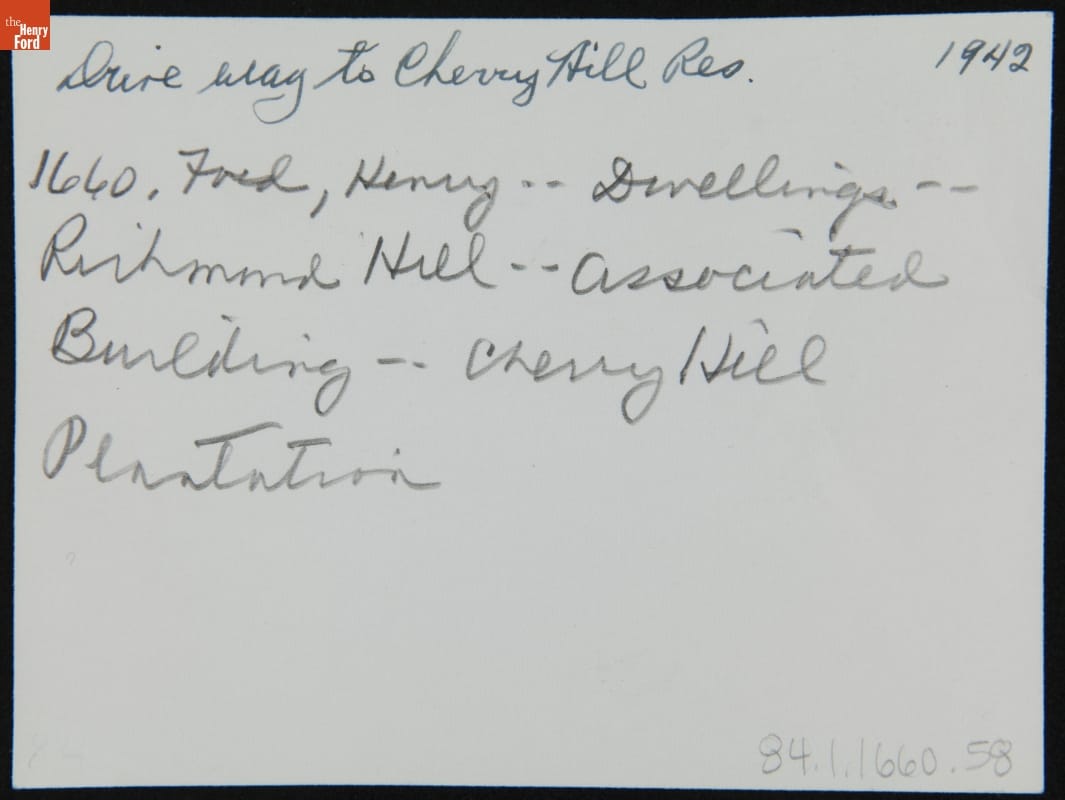 the
Henry
Ford
Drive way to Cherry Hill Res. 1942
1660. Ford, Henry -- Dwellings --
Richmond Hill -- Associated
Building -- Cherry Hill
Plantation
84.1.1660.58